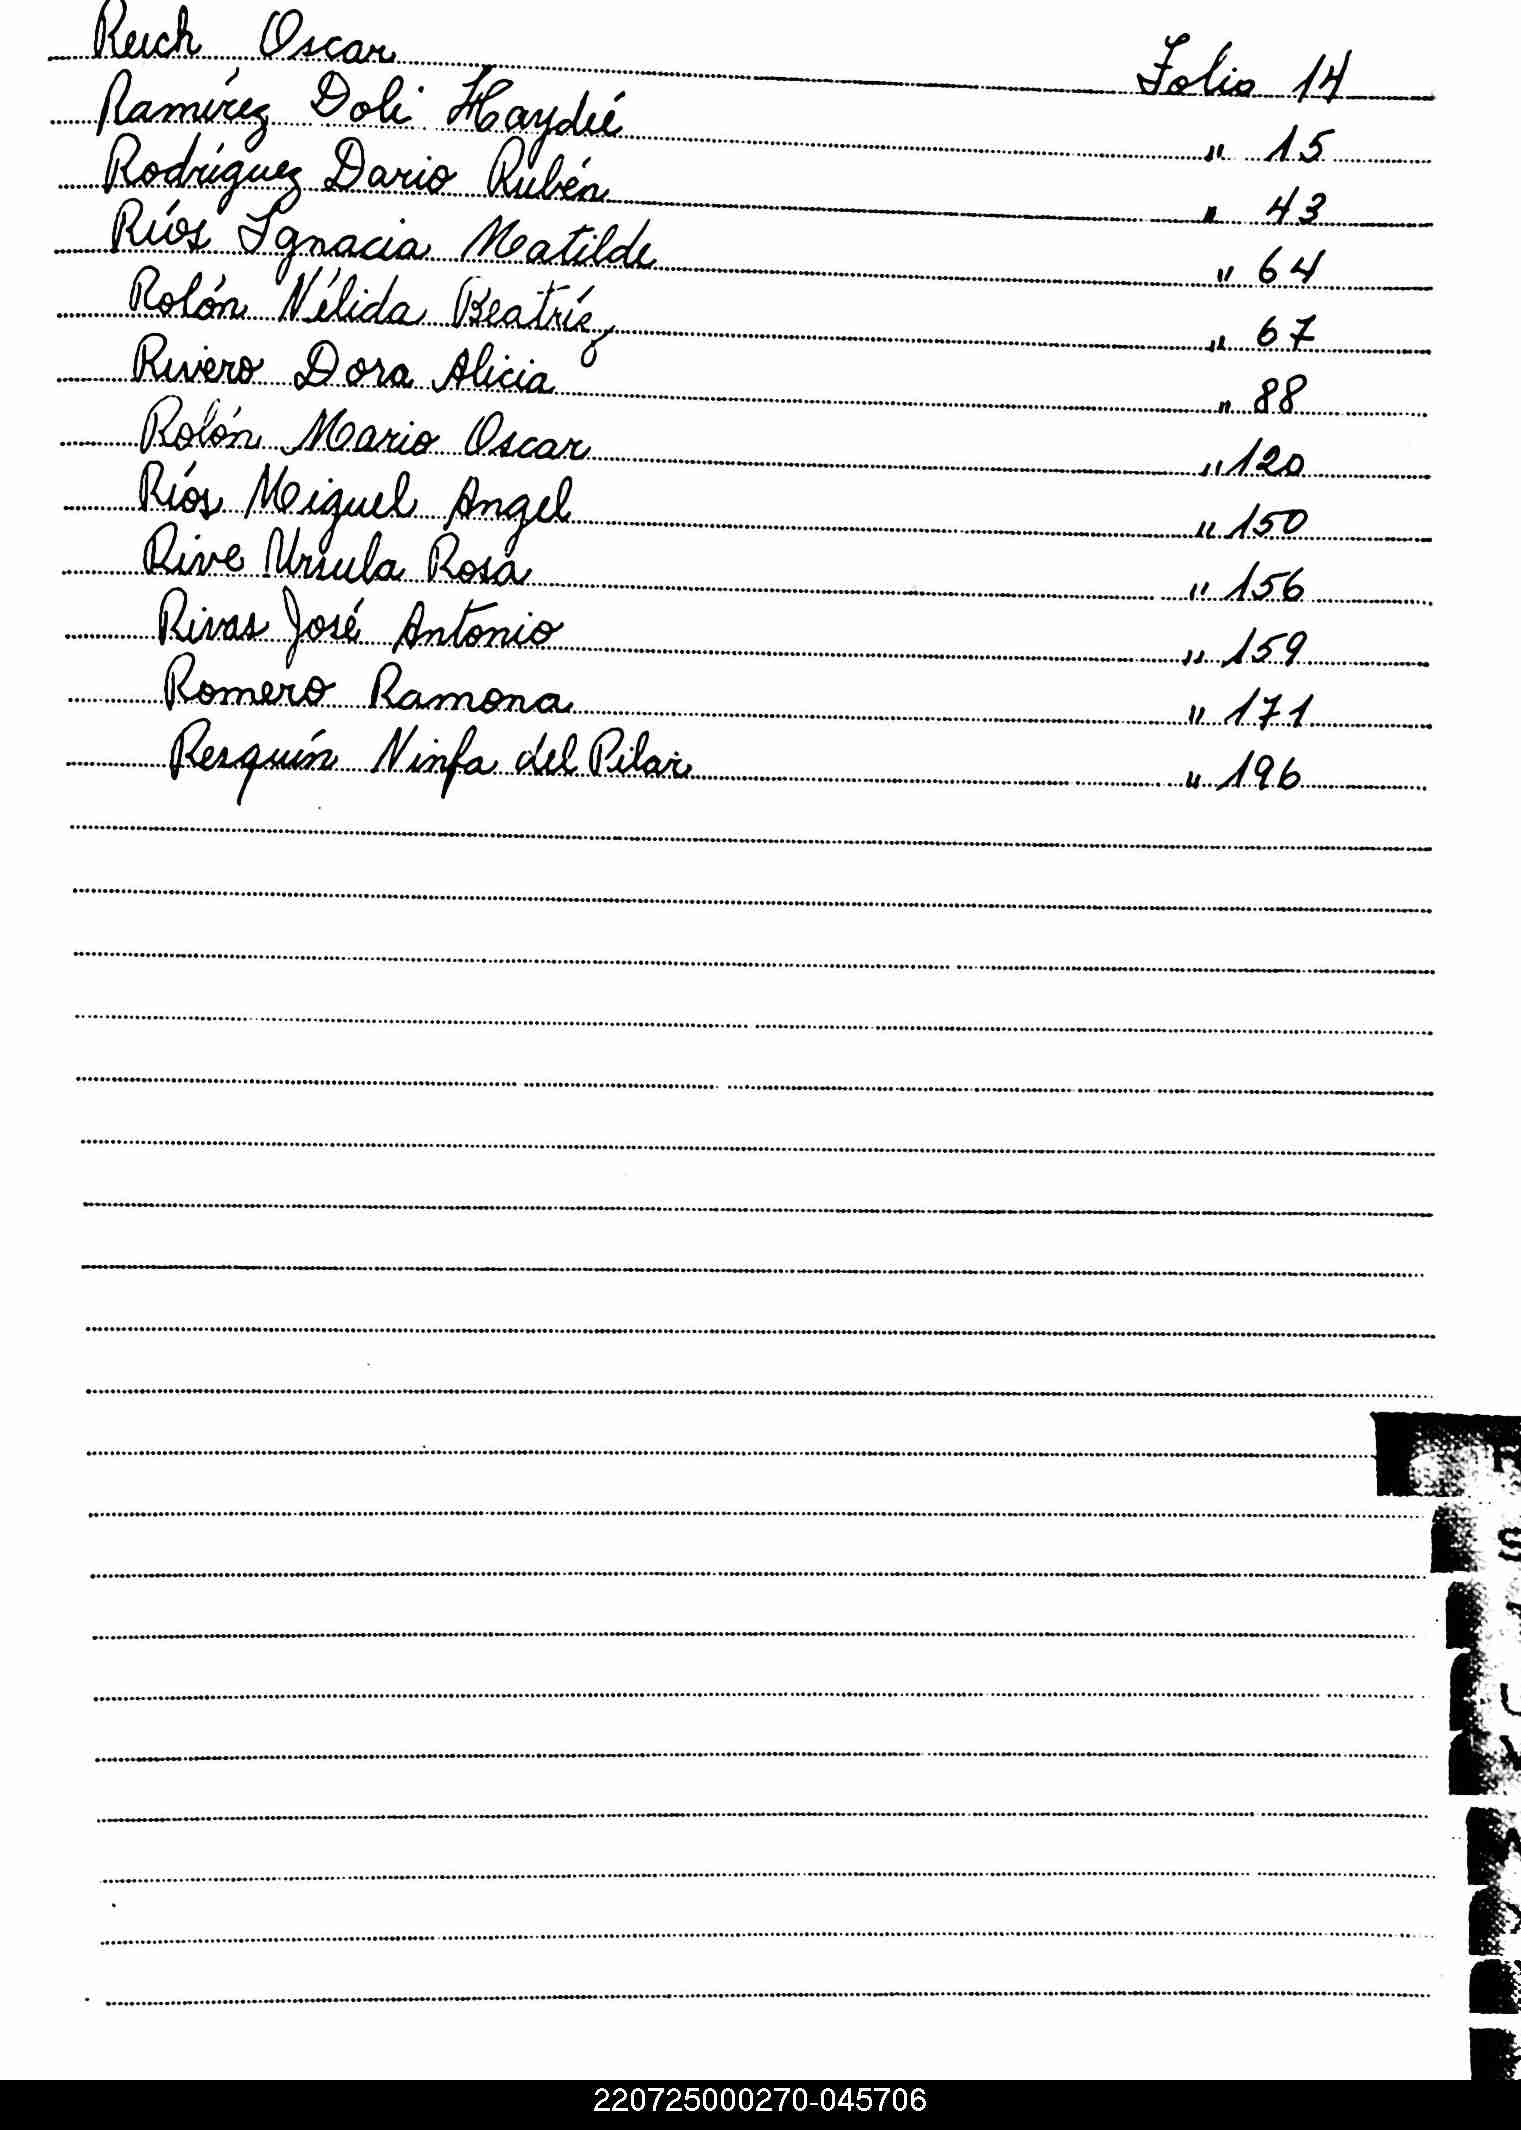 Reich Oscar Folio 14
Ramírez Doli Haydeé " 15
Rodríguez Dario Rubén " 43
Ríos Ignacia Matilde " 64
Rolón Nélida Beatríz " 67
Rivero Dora Alicia " 88
Rolón Mario Oscar " 120
Ríos Miguel Angel " 150
Rive Ursula Rosa " 156
Rivas José Antonio " 159
Romero Ramona " 171
Resquín Ninfa del Pilar " 196
S
U
220725000270-045706